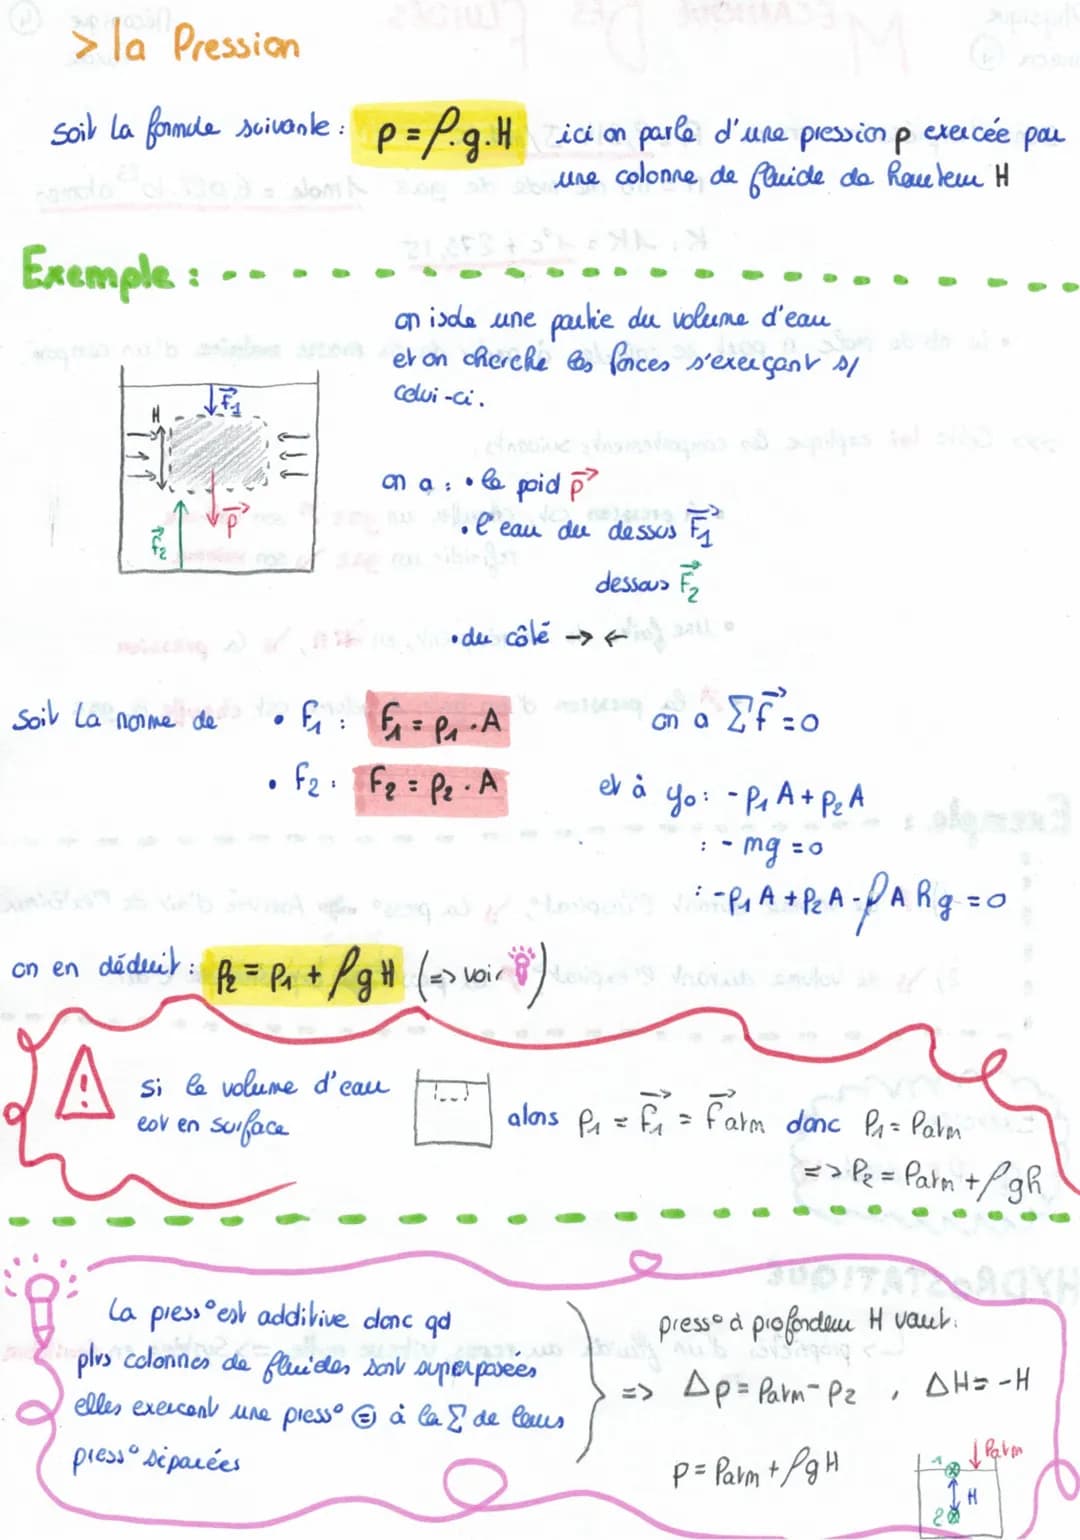 > la Pression
soit la formule suivante : p = ρ.g.H ici on parle d'une pression p exercée par
une colonne de fluide de hauteur H
Exemple :
on isole une partie du volume d'eau
et on cherche les forces s'exerçant s/
celui-ci.
F1
H
P
F2
on a : • le poid p
• l'eau du dessus F1
dessous F2
• du côté → ←
Soit la norme de • F1 : F1 = p1 . A on a Σ F = 0
• F2 : F2 = p2 . A et à yo : - p1 A + p2 A
: - mg = 0
: - p1 A + p2 A - ρ A h g = 0
on en déduit : p2 = p1 + ρ g H (=> voir )
!
Si le volume d'eau
est en surface
alors p1 = F1 = Fatm donc p1 = Patm
=> P2 = Patm + ρgh
La press° est additive donc qd
plrs colonnes de fluides sont superposées
elles exercent une press° = à la Σ de leurs
press° séparées
=>
press° à profondeur H vaut :
Δp = Patm - p2 , ΔH = -H
p = Patm + ρgH
Patm
1
H
2